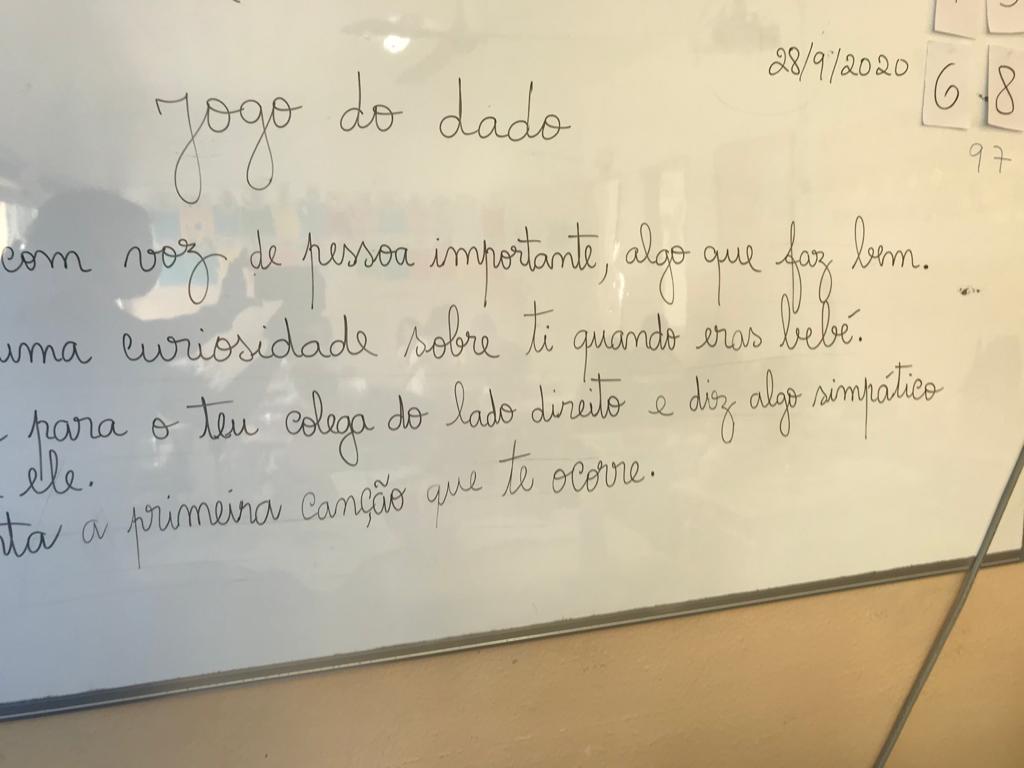 28/9/2020
6 8
97
Jogo do dado
com voz de pessoa importante, algo que faz bem.
uma curiosidade sobre ti quando eras bebé.
para o teu colega do lado direito e diz algo simpático
ele.
nta a primeira canção que te ocorre.